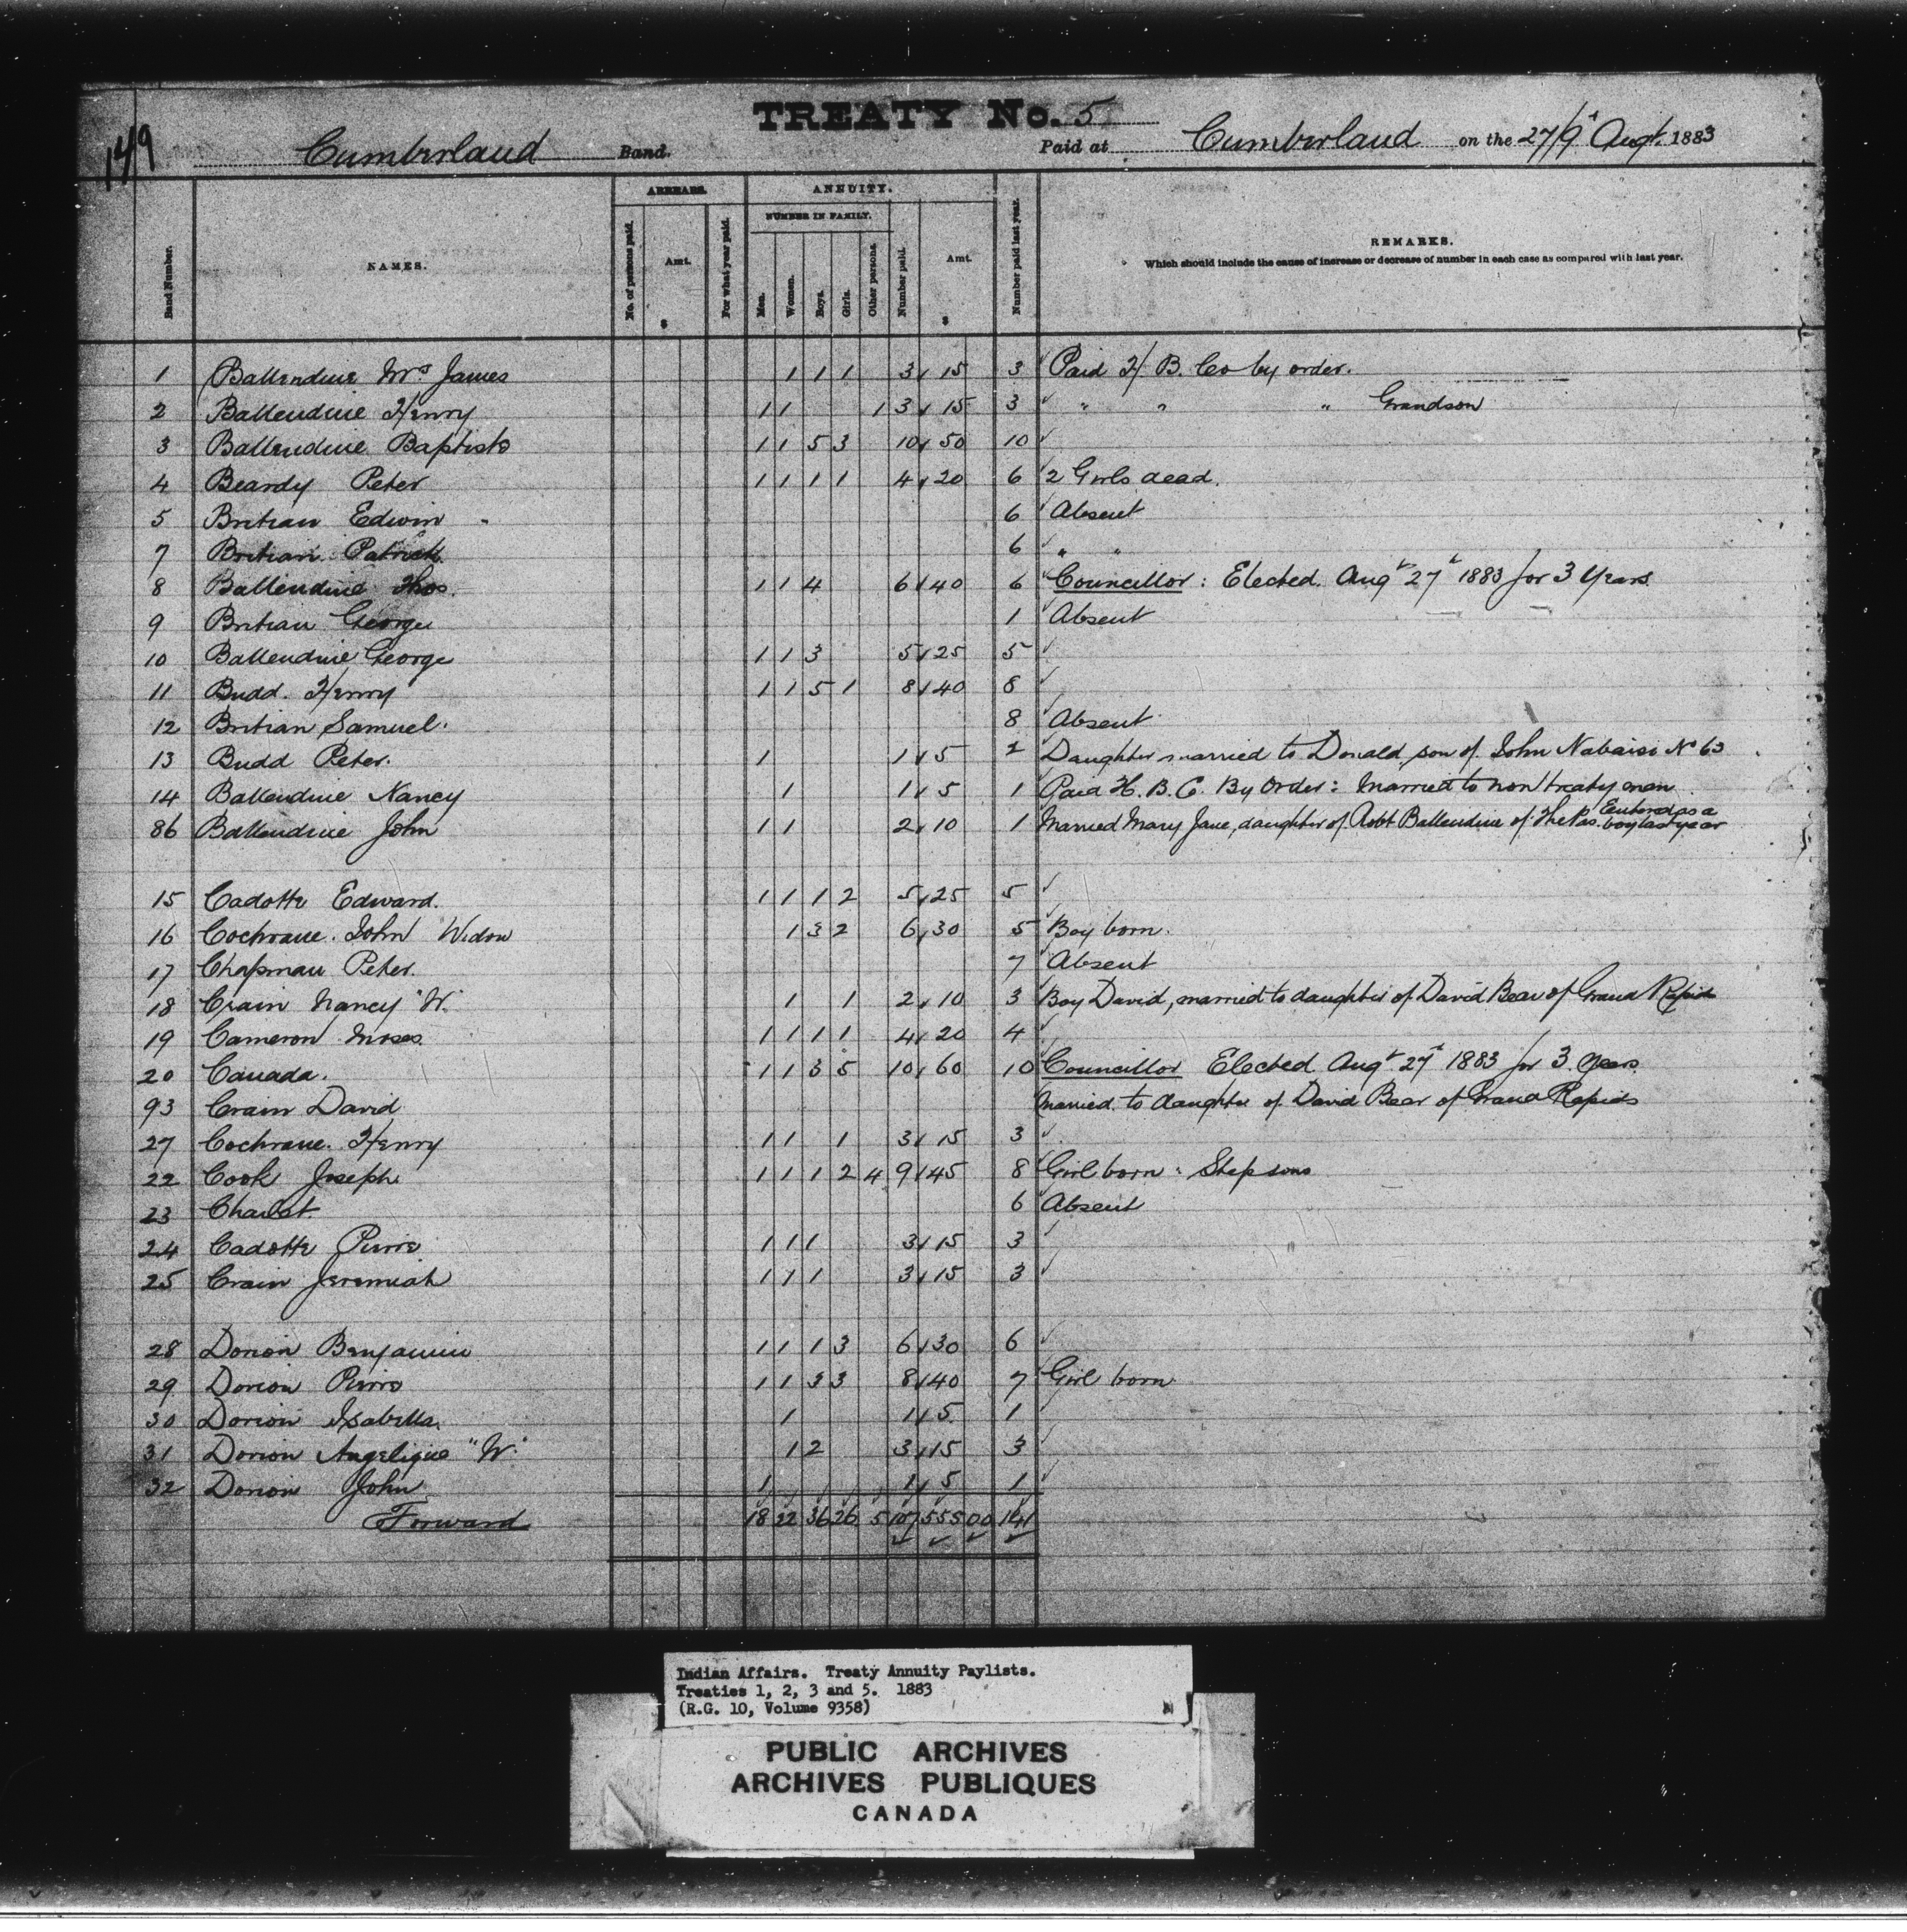 149
TREATY No. 5
Cumberland Band. Paid at Cumberland on the 27/9t Augt. 1883
ARREARS. ANNUITY.
NUMBER IN FAMILY.
Band Number. NAMES. No. of persons paid. Amt. $ For what year paid. Men. Women. Boys. Girls. Other persons. Number paid. Amt. $ Number paid last year. REMARKS.
Which should include the cause of increase or decrease of number in each case as compared with last year.
1 Ballendine Mrs James 1 1 1 3 15 3 Paid H. B. Co by order.
2 Ballendine Henry 1 1 1 3 15 3 " " " Grandson
3 Ballendine Baptiste 1 1 5 3 10 50 10
4 Beardy Peter 1 1 1 1 4 20 6 2 Girls dead.
5 Britian Edwin 6 Absent
7 Britian Patrick 6 " "
8 Ballendine Thos. 1 1 4 6 40 6 Councillor : Elected Augt 27t 1883 for 3 Years.
9 Britian George 1 Absent
10 Ballendine George 1 1 3 5 25 5
11 Budd. Henry 1 1 5 1 8 40 8
12 Britian Samuel. 8 Absent
13 Budd Peter. 1 1 5 2 Daughter married to Donald son of John Nabaise No 63
14 Ballendine Nancy 1 1 5 1 Paid H. B. C. By Order : Married to non treaty man
86 Ballendine John 1 1 2 10 1 Married Mary Jane, daughter of Robt Ballendine of The Pas. Entered as a boy last year
15 Cadotte Edward. 1 1 1 2 5 25 5
16 Cochrane. John Widow 1 3 2 6 30 5 Boy born.
17 Chapman Peter. 7 Absent
18 Crain Nancy "W." 1 1 2 10 3 Boy David, married to daughter of David Bear of Grand Rapids
19 Cameron Moses. 1 1 1 1 4 20 4
20 Canada. 1 1 3 5 10 60 10 Councillor Elected Augt 27t 1883 for 3 Years.
93 Crain David Married to daughter of David Bear of Grand Rapids
27 Cochrane. Henry 1 1 1 3 15 3
22 Cook Joseph 1 1 1 2 4 9 45 8 Girl born : Step sons
23 6 Absent
24 Cadotte Pierre 1 1 1 3 15 3
25 Crain Jeremiah 1 1 1 3 15 3
28 Dorion Benjamin 1 1 1 3 6 30 6
29 Dorion Pierre 1 1 3 3 8 40 7 Girl born
30 Dorion Isabella. 1 1 5 1
31 Dorion Angelique "W." 1 2 3 15 3
32 Dorion John 1 1 5 1
Forward 18 22 36 26 5 107 555 00 141
Indian Affairs. Treaty Annuity Paylists.
Treaties 1, 2, 3 and 5. 1883
(R.G. 10, Volume 9358)
PUBLIC ARCHIVES
ARCHIVES PUBLIQUES
CANADA